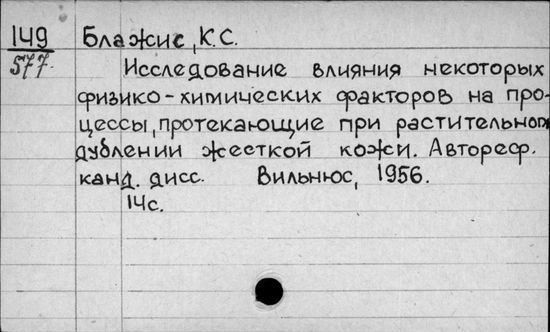 149 Блажис, К.С.
577. Исследование влияния некоторых
физико-химических факторов на про-
цессы, протекающие при растительном
дублении жесткой кожи. Автореф.
канд. дисс. Вильнюс, 1956.
14с.